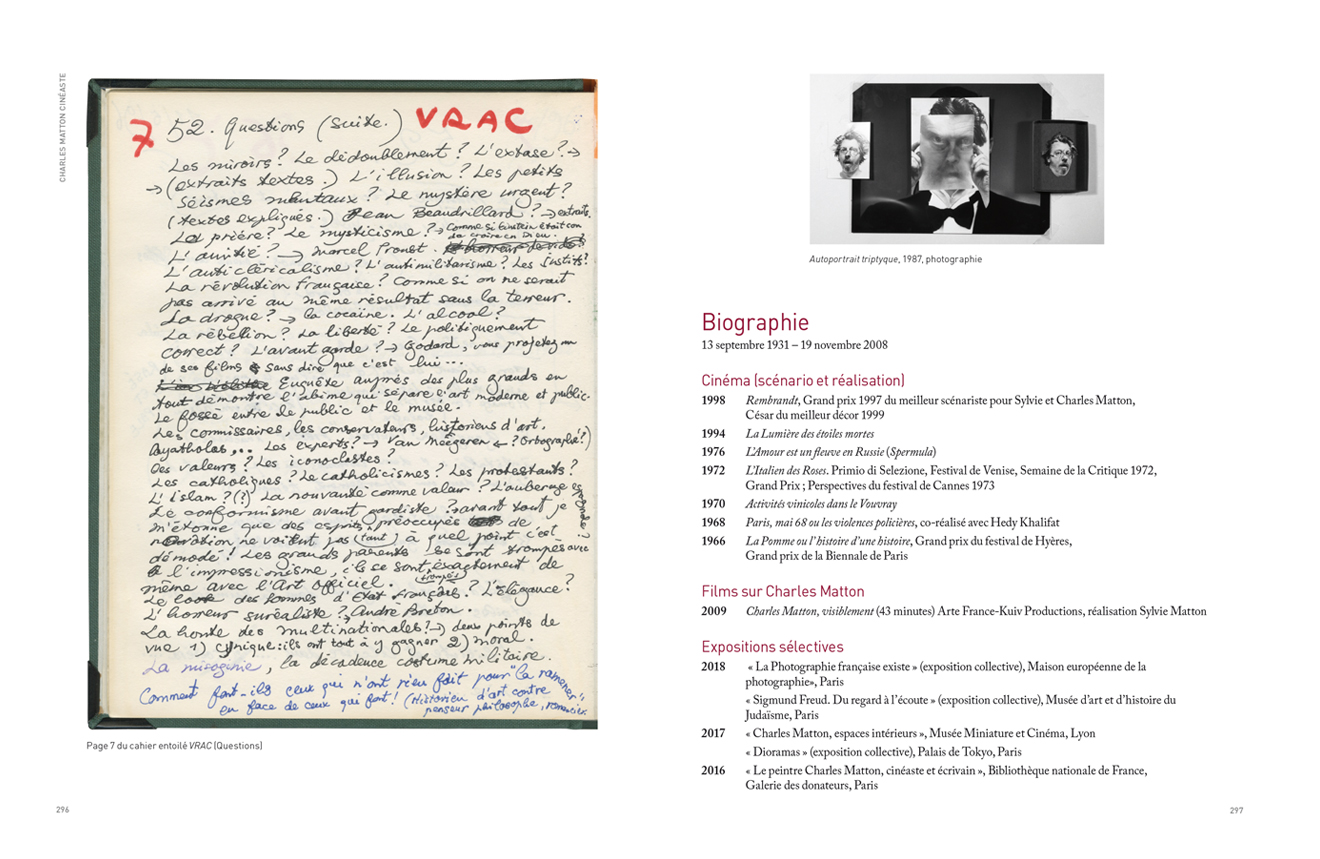 CHARLES MATTON CINÉASTE
7 52. Questions (suite.) VRAC
Les miroirs? Le dédoublement? L'extase? →
→ (extraits textes.) L'illusion? Les petits
séismes mentaux? Le mystère urgent?
(textes expliqués.) Jean Beaudrillard? → extraits.
La prière? Le mysticisme? → Comme si Einstein était con
de croire en Dieu.
L'amitié? → Marcel Proust.
L'anticléricalisme? L'antimilitarisme? Les
La révolution française? Comme si on ne serait
pas arrivé au même résultat sans la terreur.
La drogue? → la cocaïne. L'alcool?
La rébellion? La liberté? Le politiquement
correct? L'avant garde? → Godard, vous projetez un
de ses films sans dire que c'est lui...
Enquête auprès des plus grands en
tout démontre l'abîme qui sépare l'art moderne et public.
Le fossé entre le public et le musée.
Les commissaires, les conservateurs, historiens d'art.
Ayatholas... Les experts? → Van Meegeren ← ? Orthographe!?)
Des valeurs? Les iconoclastes?
Les catholiques? Le catholicismes? Les protestants?
L'islam? (?) La nouvauté comme valeur? L'auberge espagnole?
Le conformisme avant gardiste? avant tout je
m'étonne que des esprits préoccupés de
ne voient pas (tant) à quel point c'est
démodé! Les grands parents se sont trompés avec
l'impressionisme, ils se sont exactement de
trompés
même avec l'Art officiel.
Le look des hommes d'Etat français? L'élégance?
L'horreur suréaliste? André Breton.
La honte des multinationales? → deux points de
vue 1) cynique: ils ont tout à y gagner 2) moral.
La misogenie, la décadence costume militaire.
Comment font-ils ceux qui n'ont rien fait pour "la ramener",
en face de ceux qui font! (Historien d'art contre
penseur philosophe, romancier.
Page 7 du cahier entoilé VRAC (Questions)
296
Autoportrait triptyque, 1987, photographie
Biographie
13 septembre 1931 – 19 novembre 2008
Cinéma (scénario et réalisation)
1998 Rembrandt, Grand prix 1997 du meilleur scénariste pour Sylvie et Charles Matton,
César du meilleur décor 1999
1994 La Lumière des étoiles mortes
1976 L'Amour est un fleuve en Russie (Spermula)
1972 L'Italien des Roses. Primio di Selezione, Festival de Venise, Semaine de la Critique 1972,
Grand Prix ; Perspectives du festival de Cannes 1973
1970 Activités vinicoles dans le Vouvray
1968 Paris, mai 68 ou les violences policières, co-réalisé avec Hedy Khalifat
1966 La Pomme ou l'histoire d'une histoire, Grand prix du festival de Hyères,
Grand prix de la Biennale de Paris
Films sur Charles Matton
2009 Charles Matton, visiblement (43 minutes) Arte France-Kuiv Productions, réalisation Sylvie Matton
Expositions sélectives
2018 « La Photographie française existe » (exposition collective), Maison européenne de la
photographie», Paris
« Sigmund Freud. Du regard à l'écoute » (exposition collective), Musée d'art et d'histoire du
Judaïsme, Paris
2017 « Charles Matton, espaces intérieurs », Musée Miniature et Cinéma, Lyon
« Dioramas » (exposition collective), Palais de Tokyo, Paris
2016 « Le peintre Charles Matton, cinéaste et écrivain », Bibliothèque nationale de France,
Galerie des donateurs, Paris
297